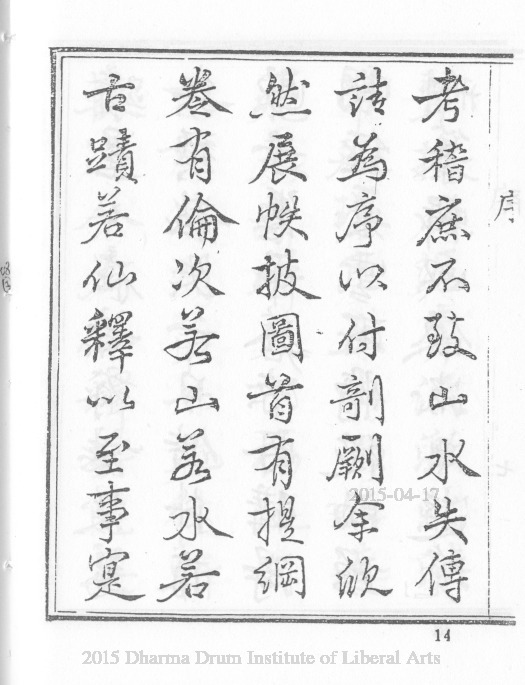 序
考稽庶不致山水失傳
請為序以付剞劂余欣
然展帙披圖首有提綱
卷有倫次若山若水若
古蹟若仙釋以至事寔
2015-04-17
14
2015 Dharma Drum Institute of Liberal Arts